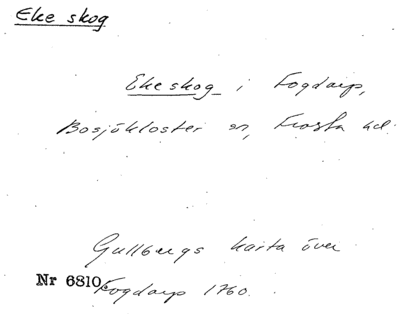 Eke skog
Ekeskog i Fogdarp,
Bosjökloster sn, Frosta hd.
Gullbergs karta över
Nr 6810. Fogdarp 1760.